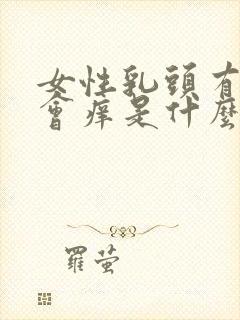 女性乳頭有
會癢是什麼
羅萤